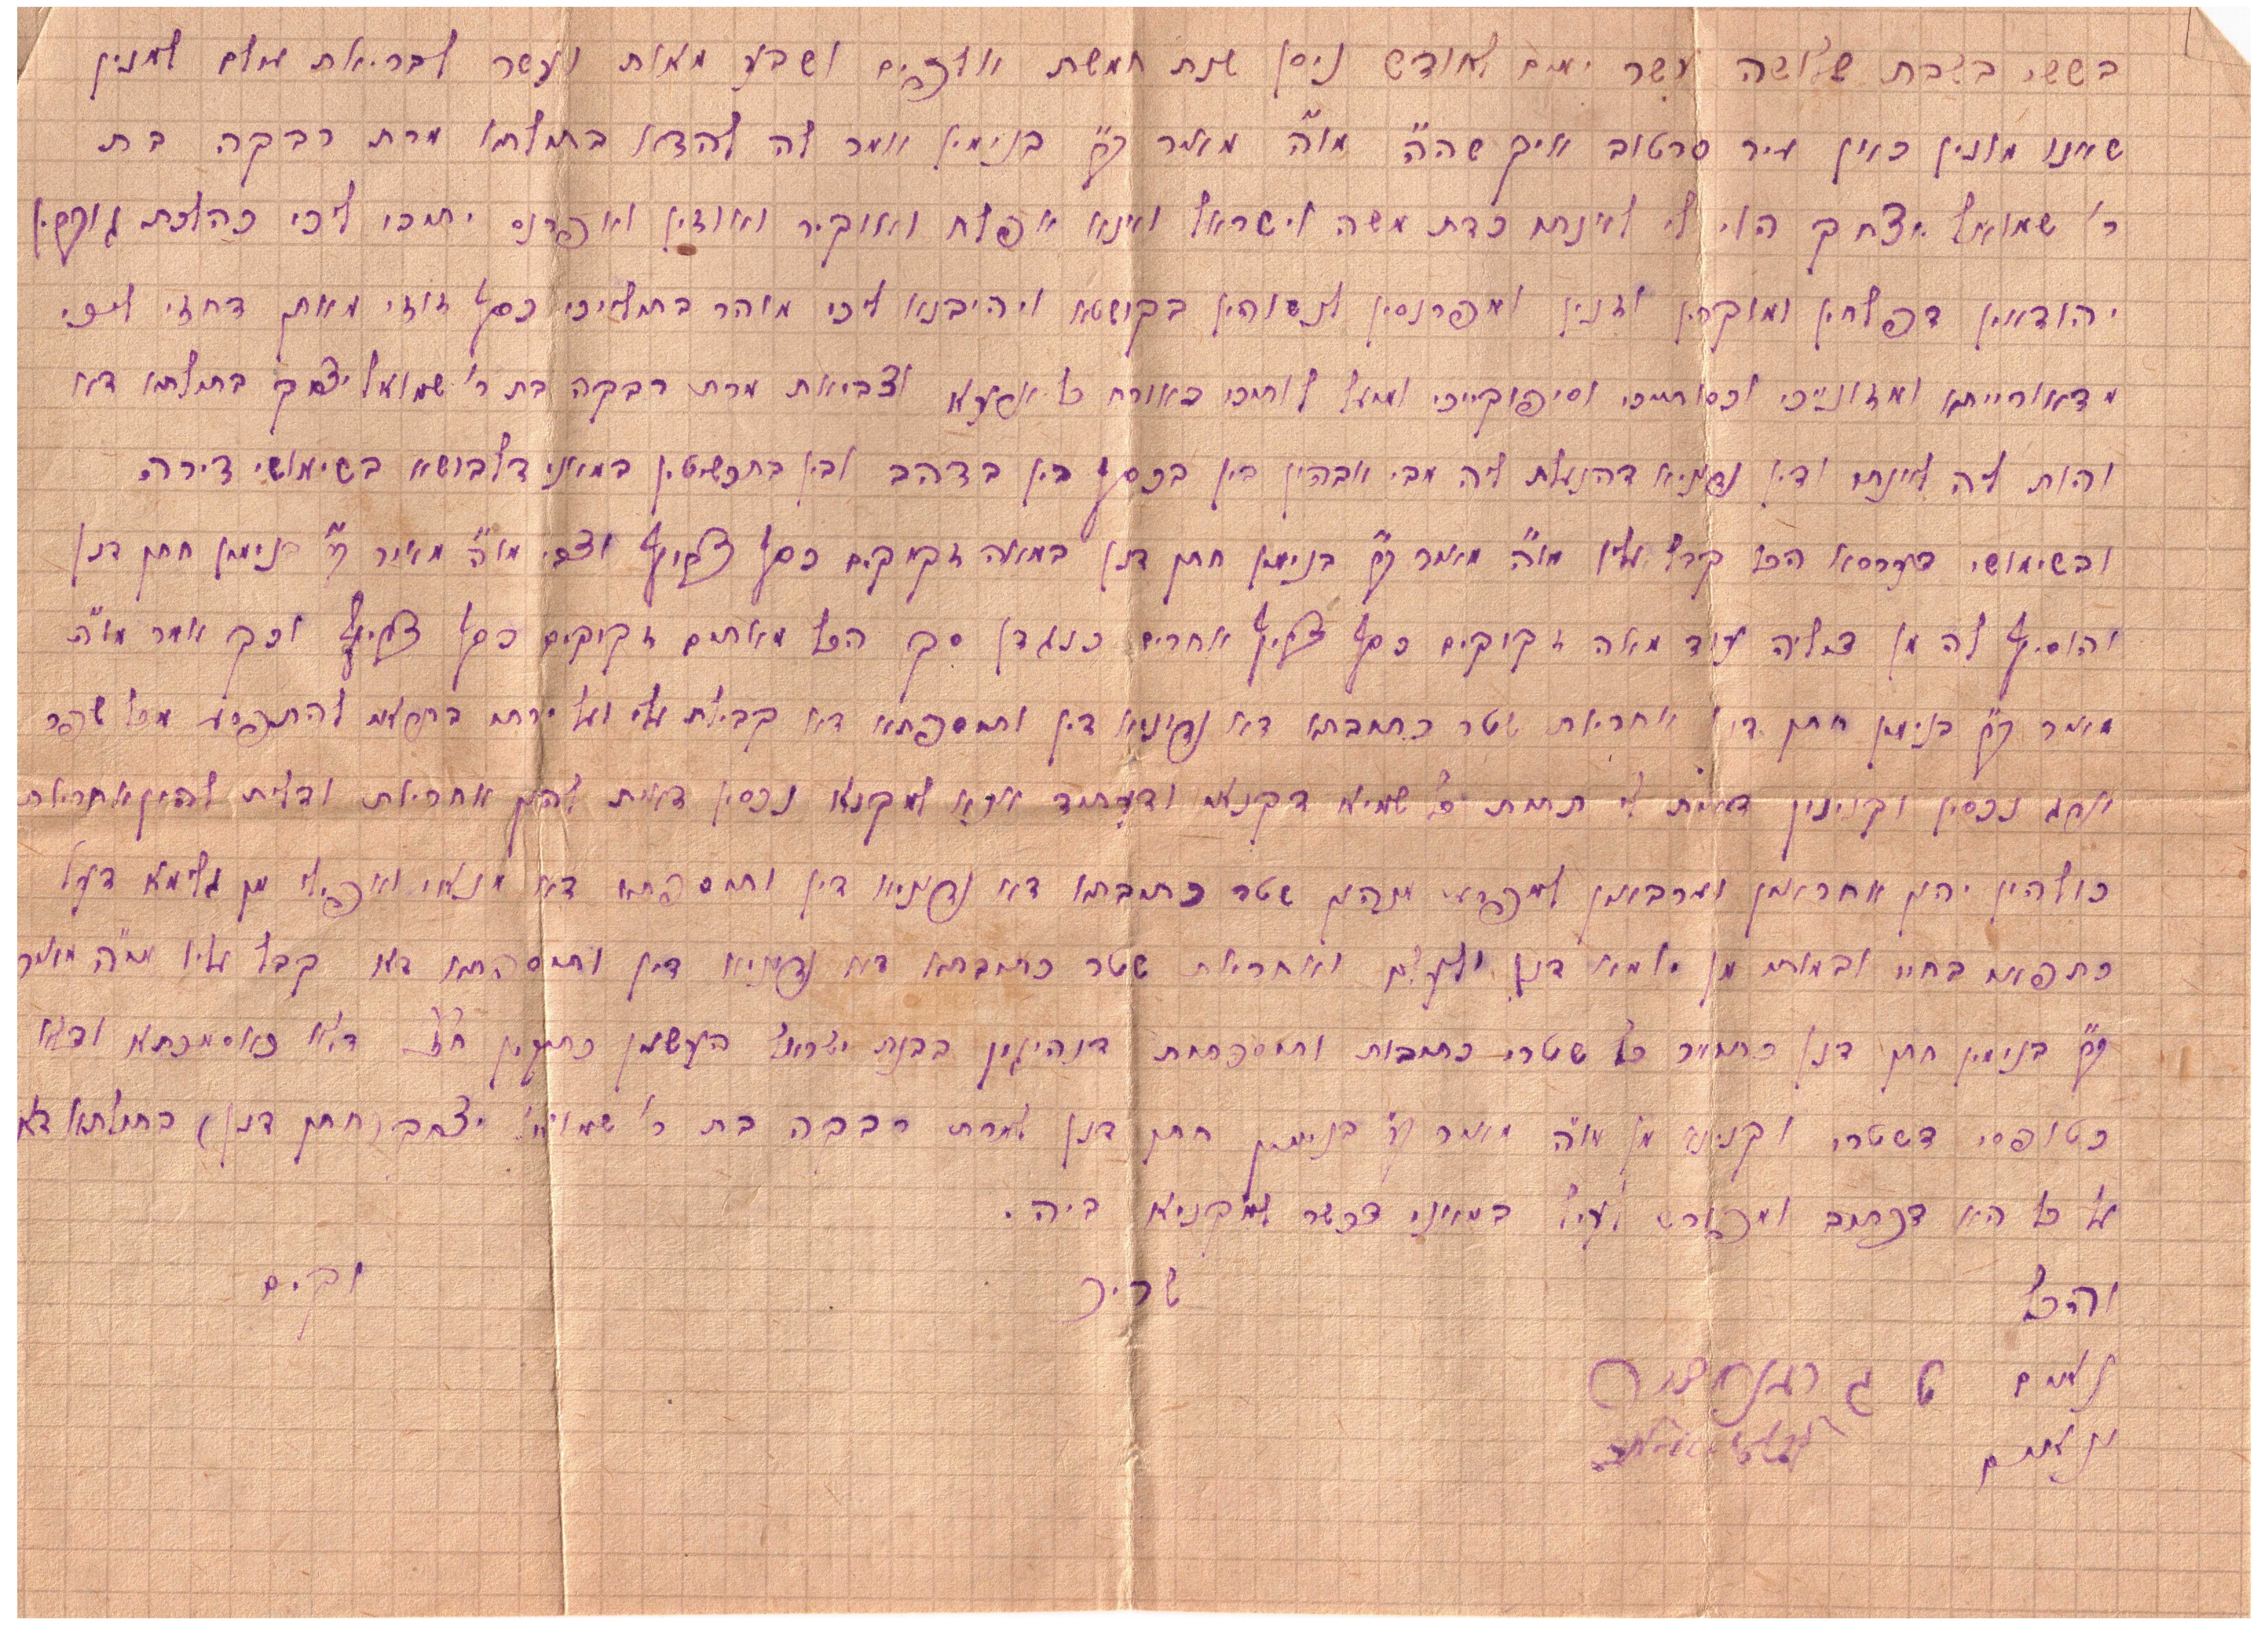 בששי בשבת שלושה עשר ימים לחודש ניסן שנת חמשת אלפים ושבע מאות ועשר לבריאת עולם למנין
שאנו מונין כאן עיר סרטוב איך שהה מו"ה מאיר ב"ר בנימין אמר לה להדא בתולתא מרת רבקה בת
ר' שמואל יצחק הוי לי לאינתו כדת משה וישראל ואנא אפלח ואוקיר ואיזון ואפרנס יתיכי ליכי כהלכת גוברין
יהודאין דפלחין ומוקרין וזנין ומפרנסין לנשיהון בקושטא ויהיבנא ליכי מוהר בתוליכי כסף זוזי מאתן דחזי ליכי
מדאורייתא ומזונייכי וכסותיכי וסיפוקייכי ומיעל לותיכי כאורח כל ארעא וצביאת מרת רבקה בת ר' שמואל יצחק בתולתא דא
והות ליה לאינתו ודין נדוניא דהנעלת ליה מבי אבהן בין בכסף בין בדהב ובין בתכשיטין במאני דלבושא בשימושי דירה
ובשימושי דערסא הכל קיבל עליו מו"ה מאיר ב"ר בנימין חתן דנן במאה זקוקים כסף צרוף וצבי מו"ה מאיר ב"ר בנימין חתן דנן
והוסיף לה מן דיליה עוד מאה זקוקים כסף צרוף אחרים כנגדן סך הכל מאתים זקוקים כסף צרוף וכך אמר מו"ה
מאיר ב"ר בנימין חתן דנן אחריות שטר כתובתא דא נדוניא דין ותוספתא דא קבילת עלי ועל ירתי בתראי להתפרע מכל שפר
ארג נכסין וקנינין דאית לי תחות כל שמיא דקנאי ודעתיד אנא למקנא נכסין דאית להון אחריות ודלית להון אחריות
כולהון יהון אחראין וערבאין לפרוע מנהון שטר כתובתא דא נדוניא דין ותוספתא דא מנאי ואפילו מן גלימא דעל
כתפאי בחיי ובמותי מן יומא דנן ולעלם ואחריות שטר כתובתא דא נדוניא דין ותוספתא דא קבל עליו מו"ה מאיר
ב"ר בנימין חתן דנן כחומר כל שטרי כתובות ותוספתות דנהיגין בבנות ישראל העשוין כתיקון חז"ל דלא כאסמכתא ודלא
כטופסי דשטרי וקנינא מן מו"ה מאיר ב"ר בנימין חתן דנן למרת רבקה בת ר' שמואל יצחק (חתן דנן) בתולתא דא
על כל הא דכתוב ומפורש לעיל במאני דכשר למקניא ביה.
והכל שריר וקים
נאום
נאום